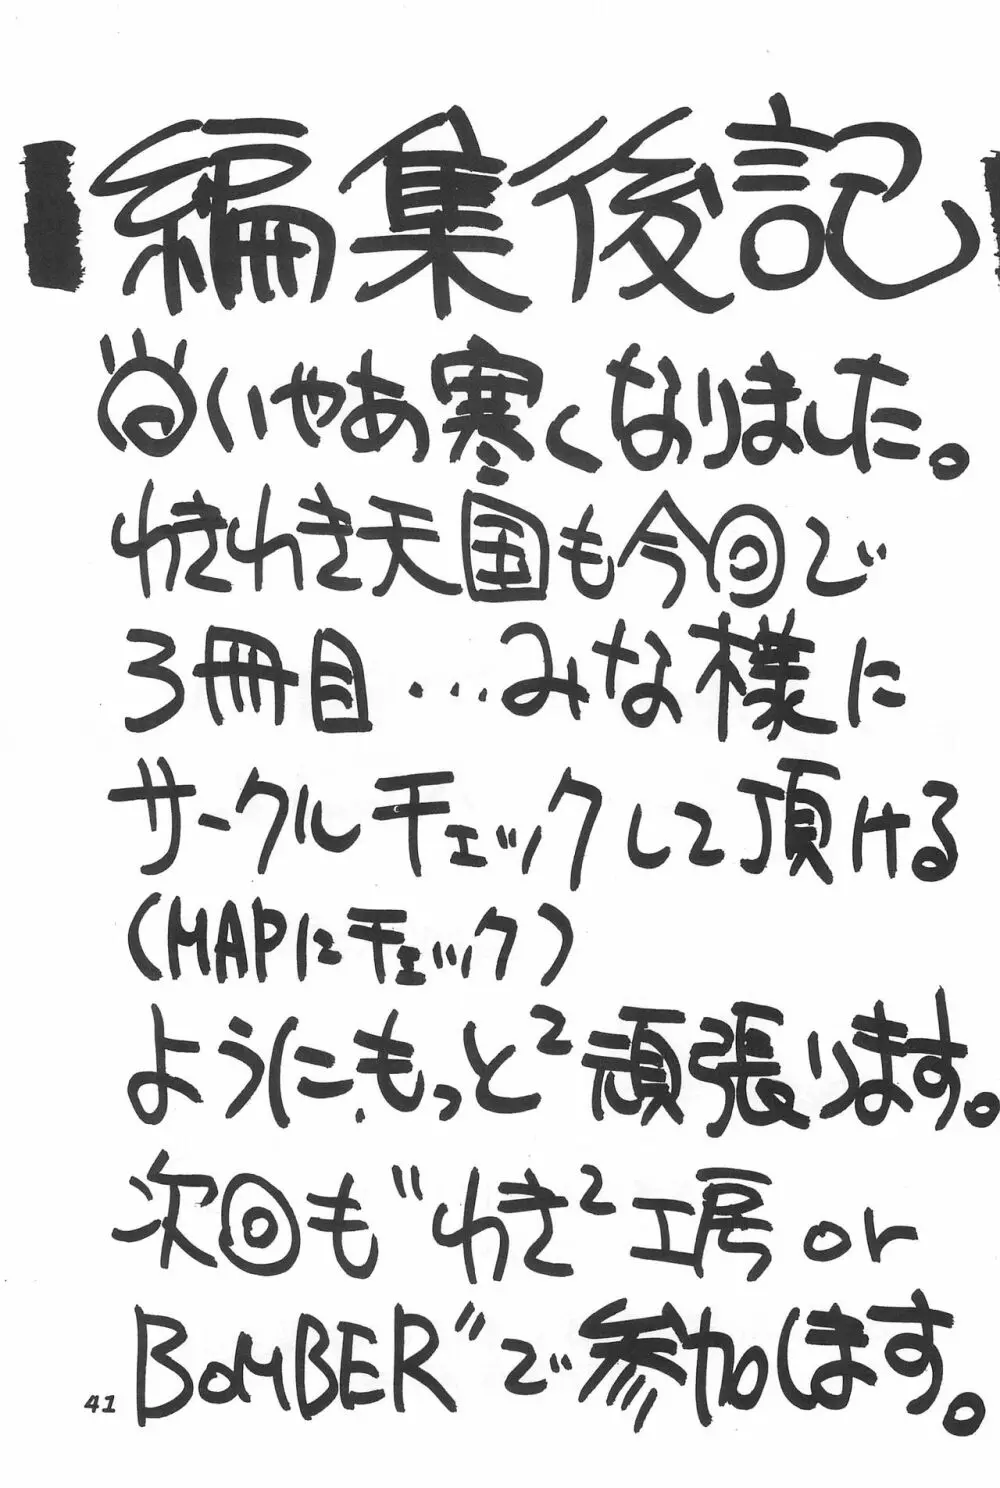 編集後記
いやあ寒くなりました。
わきわき天国も今回で
3冊目...みな様に
サークルチェックして頂ける
(MAPにチェック)
ようにもっと²頑張ります。
次回も"わき²工房 or
BOMBER"で参加します。
41